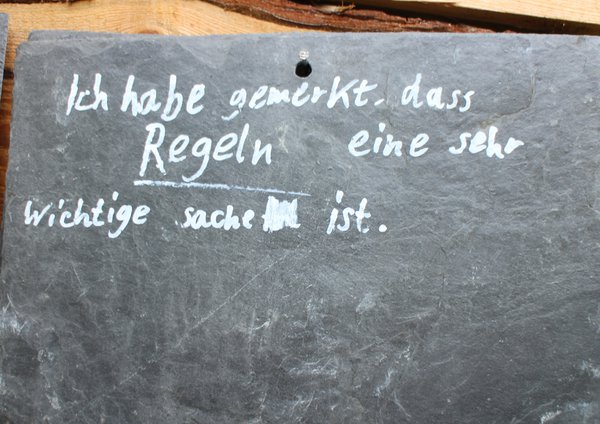 Ich habe gemerkt. dass
Regeln eine sehr
wichtige sache ist.